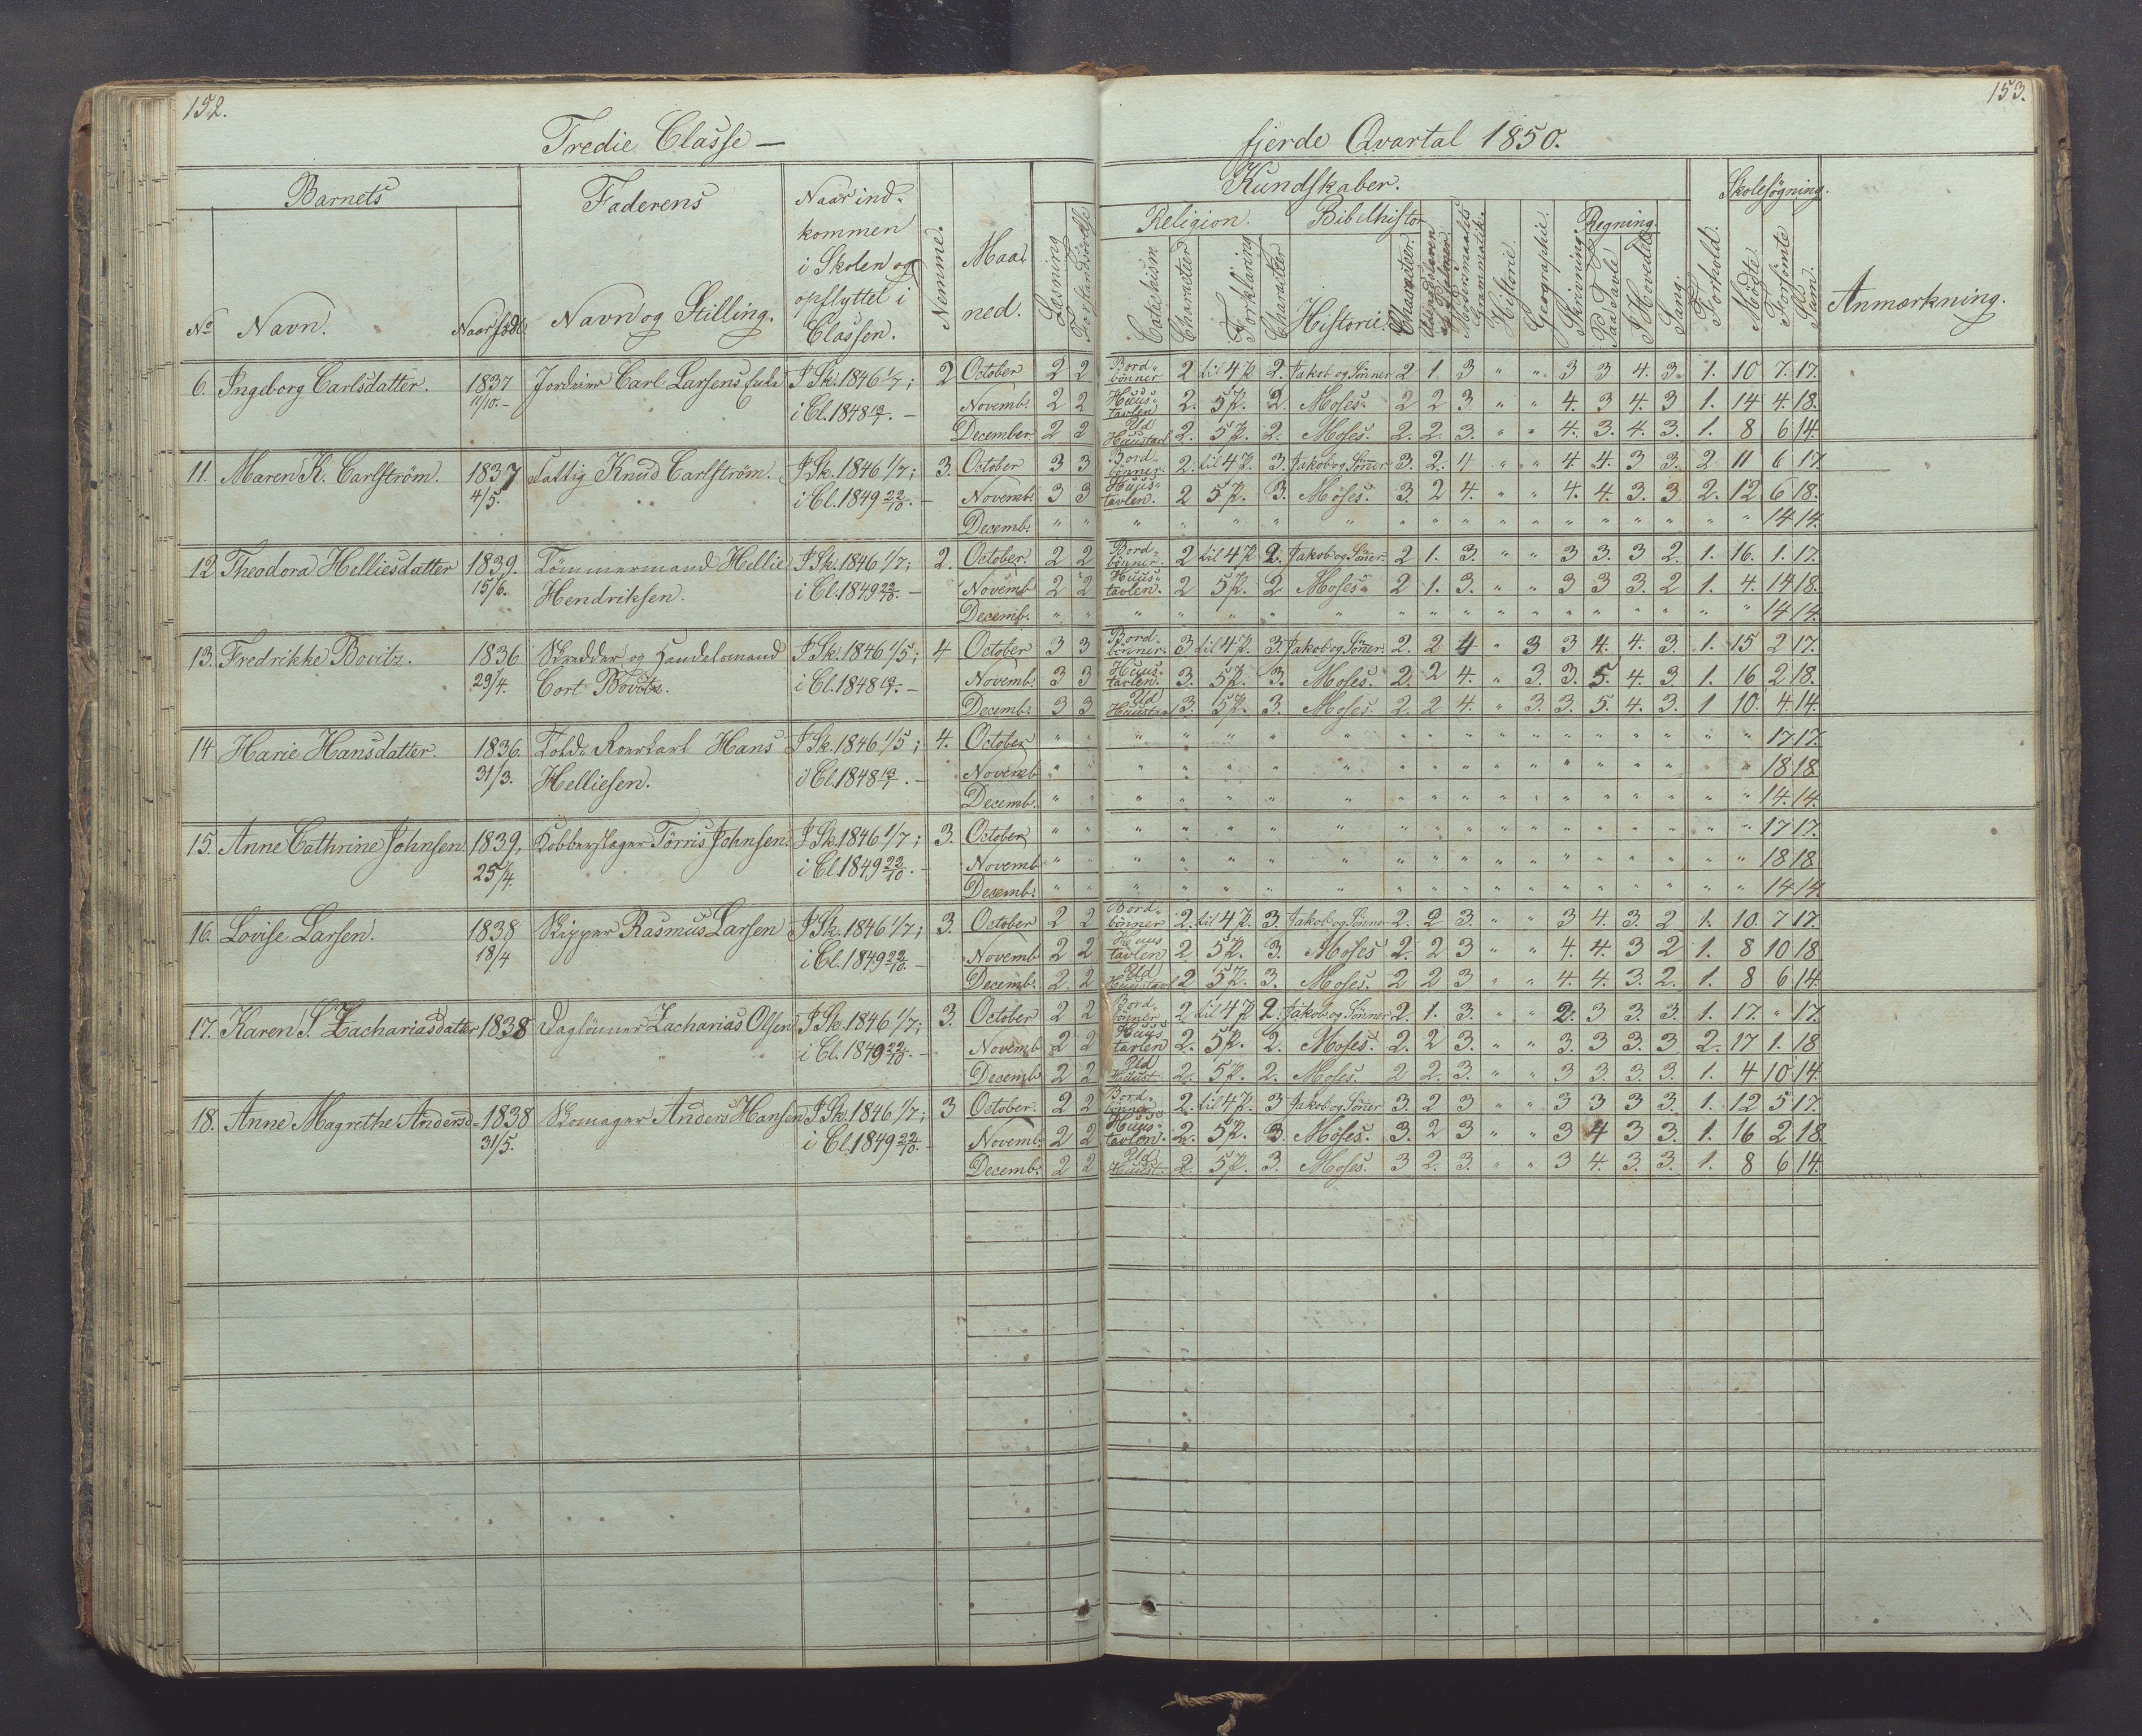 152.
153.
Tredie Classe —
fjerde Qvartal 1850.
Barnets
Faderens
Naar ind-
kommen
i Skolen og
opflyttet i
Classen.
No
Navn.
Naar född.
Navn og Stilling.
Nemme.
Maa-
ned.
Kundskaber.
Læsning
Religion.
Bibelhistor
Catechism
Character
Forklaring
Character
Historie.
Character.
Modersmaalets
Grammatik.
Historie.
Geographie.
Skrivning.
Regning.
Paa Tavle
I Hovedet
Sang.
Forhold.
Skolesøgning.
Mödte
Forsömte
Sam.
Anmærkning.
6. Ingeborg Carlsdatter. 1837 Carl Larsens I Sk. 1846 1/7; 2 October 2 2 Bord- bönner 2 til 47 2. Jakob og Sönner 2 1. 3 " " 3 3 4. 3. 1. 10 7. 17.
11/10. i Cl. 1848 Novemb. 2 2 Huus- tavlen 2. 57. 2. Moses. 2 2 3 " " 4. 3 4. 3 1. 14 4. 18.
December. 2 2 Huustavl 2. 57. 2. Moses. 2. 2. 3. " " 4. 3. 4. 3. 1. 8 6 14.
11. Maren K. Carlström. 1837 Fattig Knud Carlström. I Sk. 1846 1/7; 3. October 3 3 Bord- bönner. 2. til 47. 3. Jakob og Sönner. 3. 2. 4 " " 4. 4. 3 3. 2 11 6 17
4/5. i Cl. 1849 22/10. - Novemb. 3 3 Huus- tavlen. 2 57. 3. Moses. 3. 2 4. " " 4. 4. 3. 3 2. 12 6 18.
Decemb. " " " " " " " " " " " " " " " " " " 14 14.
12 Theodora Helliesdatter 1839. Tömmermand Hellie I Sk. 1846 1/7; 2. October. 2 2 Bord- bönner. 2 til 47 2. Jakob og Sönner. 2 1. 3. " " 3 3. 3 2. 1. 16. 1. 17.
15/6. Hendriksen. i Cl. 1849 22/10. - Novemb 2 2 Huus- tavlen. 2 57. 2 Moses. 2 1. 3. " " 3 3 3. 2 1. 4. 14 18.
Decemb. " " " " " " " " " " " " " " " " " " 14 14.
13. Fredrikke Bovitz. 1836 Skredder og Handelsmand I Sk. 1846 1/5; 4 October 3 3 Bord- bönner. 3 til 47. 3. Jakob og Sönner. 2. 2 4 " 3 3 4. 4. 3. 1. 15 2 17.
29/4. Cort Bovitz. i Cl. 1848 Novemb. 3 3 Huus- tavlen. 3. 57. 3. Moses. 2. 2 4. " 3. 3. 5. 4. 3 1. 16 2 18.
Decemb. 3 3 Huustavl 3. 57. 3. Moses. 2. 2 4. " 3. 3. 5. 4. 3. 1 10. 4. 14.
14 Marie Hansdatter. 1836. Told- Roerkarl Hans I Sk. 1846 1/5; 4. October " " " " " " " " " " " " " " " " " " 17 17.
31/3. Helliesen. i Cl. 1848 Novemb " " " " " " " " " " " " " " " " " " 18 18
Decemb. " " " " " " " " " " " " " " " " " " 14. 14.
15. Anne Cathrine Johnsen 1839, Kobberslager Törris Johnsen. I Sk. 1846 1/7; 3. October " " " " " " " " " " " " " " " " " " 17 17.
25/4. i Cl. 1849 22/10. - Novemb " " " " " " " " " " " " " " " " " " 18 18
Decemb. " " " " " " " " " " " " " " " " " " 14 14
16. Lovise Larsen. 1838 Skipper Rasmus Larsen I Sk. 1846 1/7; 3. October 2 2 Bord- bönner 2. til 47. 3. Jakob og Sönner 2. 2 3 " " 3 4. 3. 2 1. 10. 7 17.
18/4 i Cl. 1849 22/10. - Novemb 2 2 Huus tavlen 2 57. 3. Moses 2. 2 3 " " 4. 4. 3 2 1. 8 10 18
Decemb. 2. 2 Huustavl 2 57. 3. Moses. 2 2 3 " " 4. 4. 3. 2. 1. 8 6 14.
17. Karen S. Zachariasdatter 1838 Daglönner Zacharias Olsen I Sk. 1846 1/7; 3. October 2 2 Bord- bönner 2 til 47 2. Jakob og Sönner 2. 1. 3. " " 2. 3 3 3. 1. 17. " 17.
i Cl. 1849 22/10. - Novemb 2 2 Huus tavlen 2. 57. 2. Moses. 2. 2 3. " " 3. 3 3. 3 2. 17 1. 18
Decemb 2 2 Huust. 2. 57. 2. Moses. 2 2. 3. " " 3 3. 3. 3. 1. 4 10 14.
18. Anne Magrethe Andersd- 1838 Skomager Anders Hansen I Sk. 1846 1/7; 3 October. 2 2 Bord- bönner 2. til 47. 3 Jakob og Sönner 3. 2 3 " " 3 3 3 3. 1. 12 5 17.
31/5. i Cl. 1849 22/10. - Novemb. 2 2 Huus- tavlen. 2. 57. 3. Moses. 3. 2 3 " " 3 4 3 3. 1. 16 2 18
Decemb. 2 2 Huust. 2. 57. 3. Moses. 3 2. 3. " " 3 4. 3. 3. 1. 8 6 14.